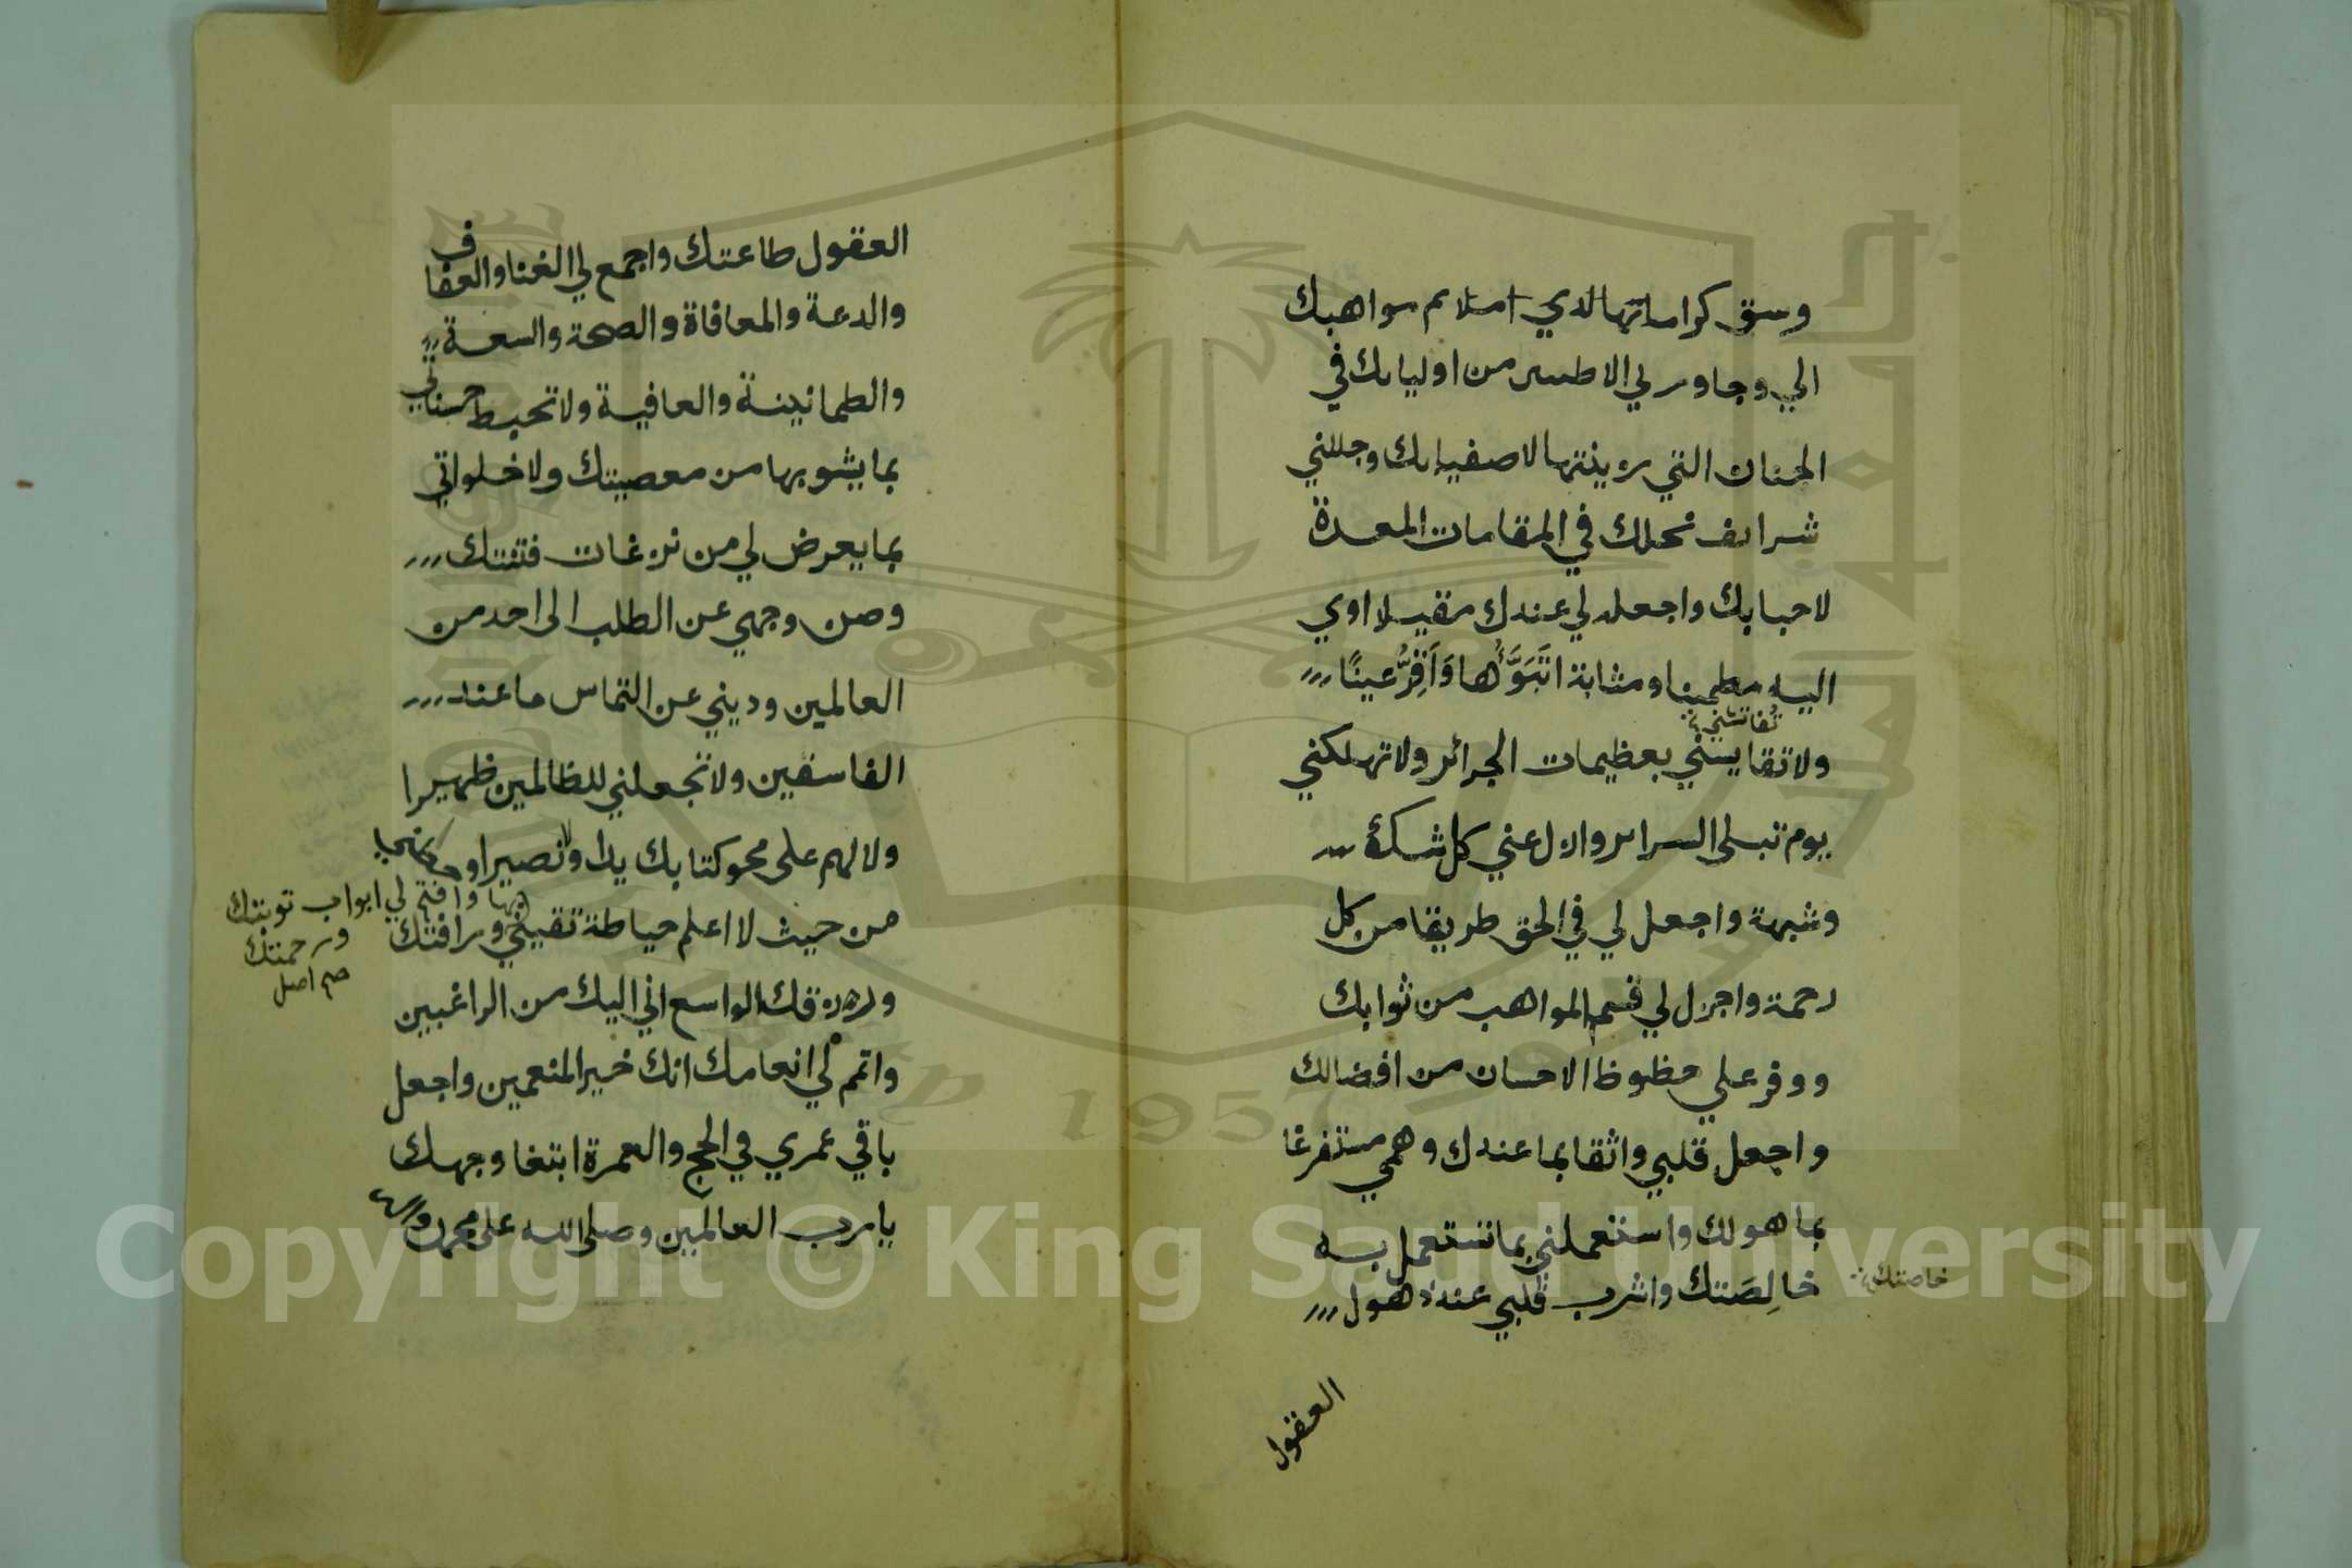 وسق كراماتها لدي املا م مواهبك
الي وجاور لي الاطيبين من اوليايك في
الجنان التي زينتها لاصفيايك وجللني
شرايف نحلك في المقامات المعدة
لاحبابك واجعل لي عندك مقيلا اوي
اليه مطمينا ومثابة اتَبَوَّأُها وَاَقِرُّ عينًا
تُفاتشني
ولا تقايسني بعظيمات الجرائر ولا تهلكني
يوم تبلى السراير وازل عني كل شك
وشبهة واجعل لي في الحق طريقا من كل
رحمة واجزل لي قسم المواهب من ثوابك
ووفر علي حظوظ الاحسان من افضالك
واجعل قلبي واثقا بما عندك وهمي مستفرغا
بما هو لك واستعملني بما تستعمل به
خالِصَتك واشرب قلبي عند ذهول
خاصتك
العقول
العقول طاعتك واجمع لي الغنا والعفاف
والدعة والمعافاة والصحة والسعة
والطمانينة والعافية ولا تحبط حسناتي
بما يشوبها من معصيتك ولا خلواتي
بما يعرض لي من نزغات فتنتك
وصن وجهي عن الطلب الى احد من
العالمين وديني عن التماس ما عند
الفاسقين ولا تجعلني للظالمين ظهيرا
ولا لهم على محو كتابك يدا ولا نصيرا و
من حيث لا اعلم حياطة تقيني ورافتك
بها وافتح لي ابواب توبتك
ورحمتك
صح اصل
ورزقك الواسع اني اليك من الراغبين
واتمم لي انعامك انك خير المنعمين واجعل
باقي عمري في الحج والعمرة ابتغا وجهك
يا رب العالمين وصلى الله على محمد و
Copyright © King Saud University
1957